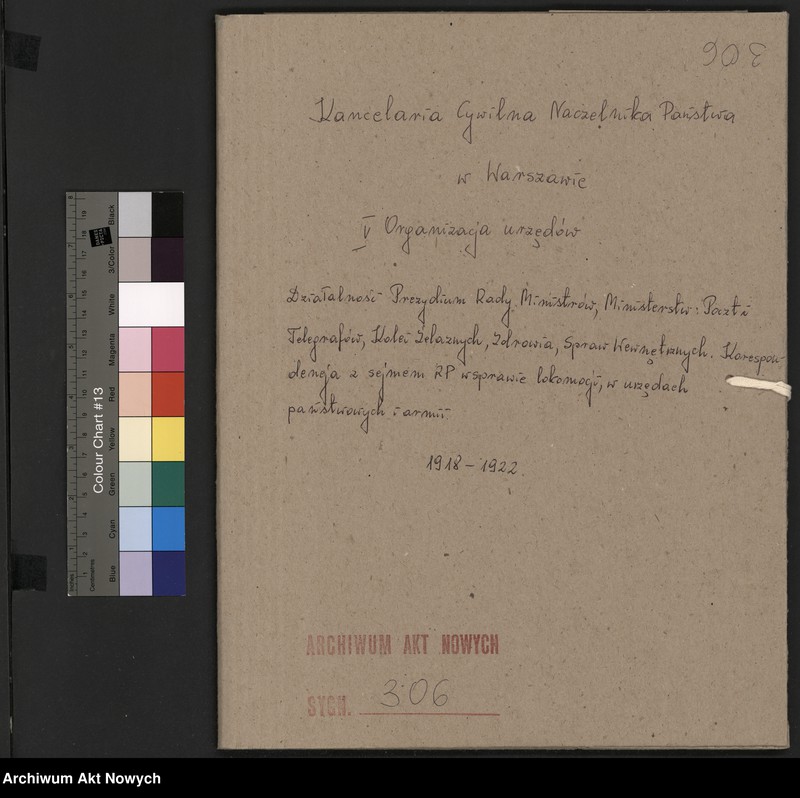 306
Kancelaria Cywilna Naczelnika Państwa
w Warszawie
V Organizacja urzędów
Działalność Prezydium Rady Ministrów, Ministerstw: Poczt i
Telegrafów, Kolei Żelaznych, Zdrowia, Spraw Wewnętrznych. Korespon-
dencja z sejmem RP w sprawie lokomocji, w urzędach
państwowych i armii.
1918 – 1922
ARCHIWUM AKT NOWYCH
SYGN. 306
Colour Chart #13
Black
3/Color
White
Magenta
Red
Yellow
Green
Cyan
Blue
Centimetres
Inches
Archiwum Akt Nowych